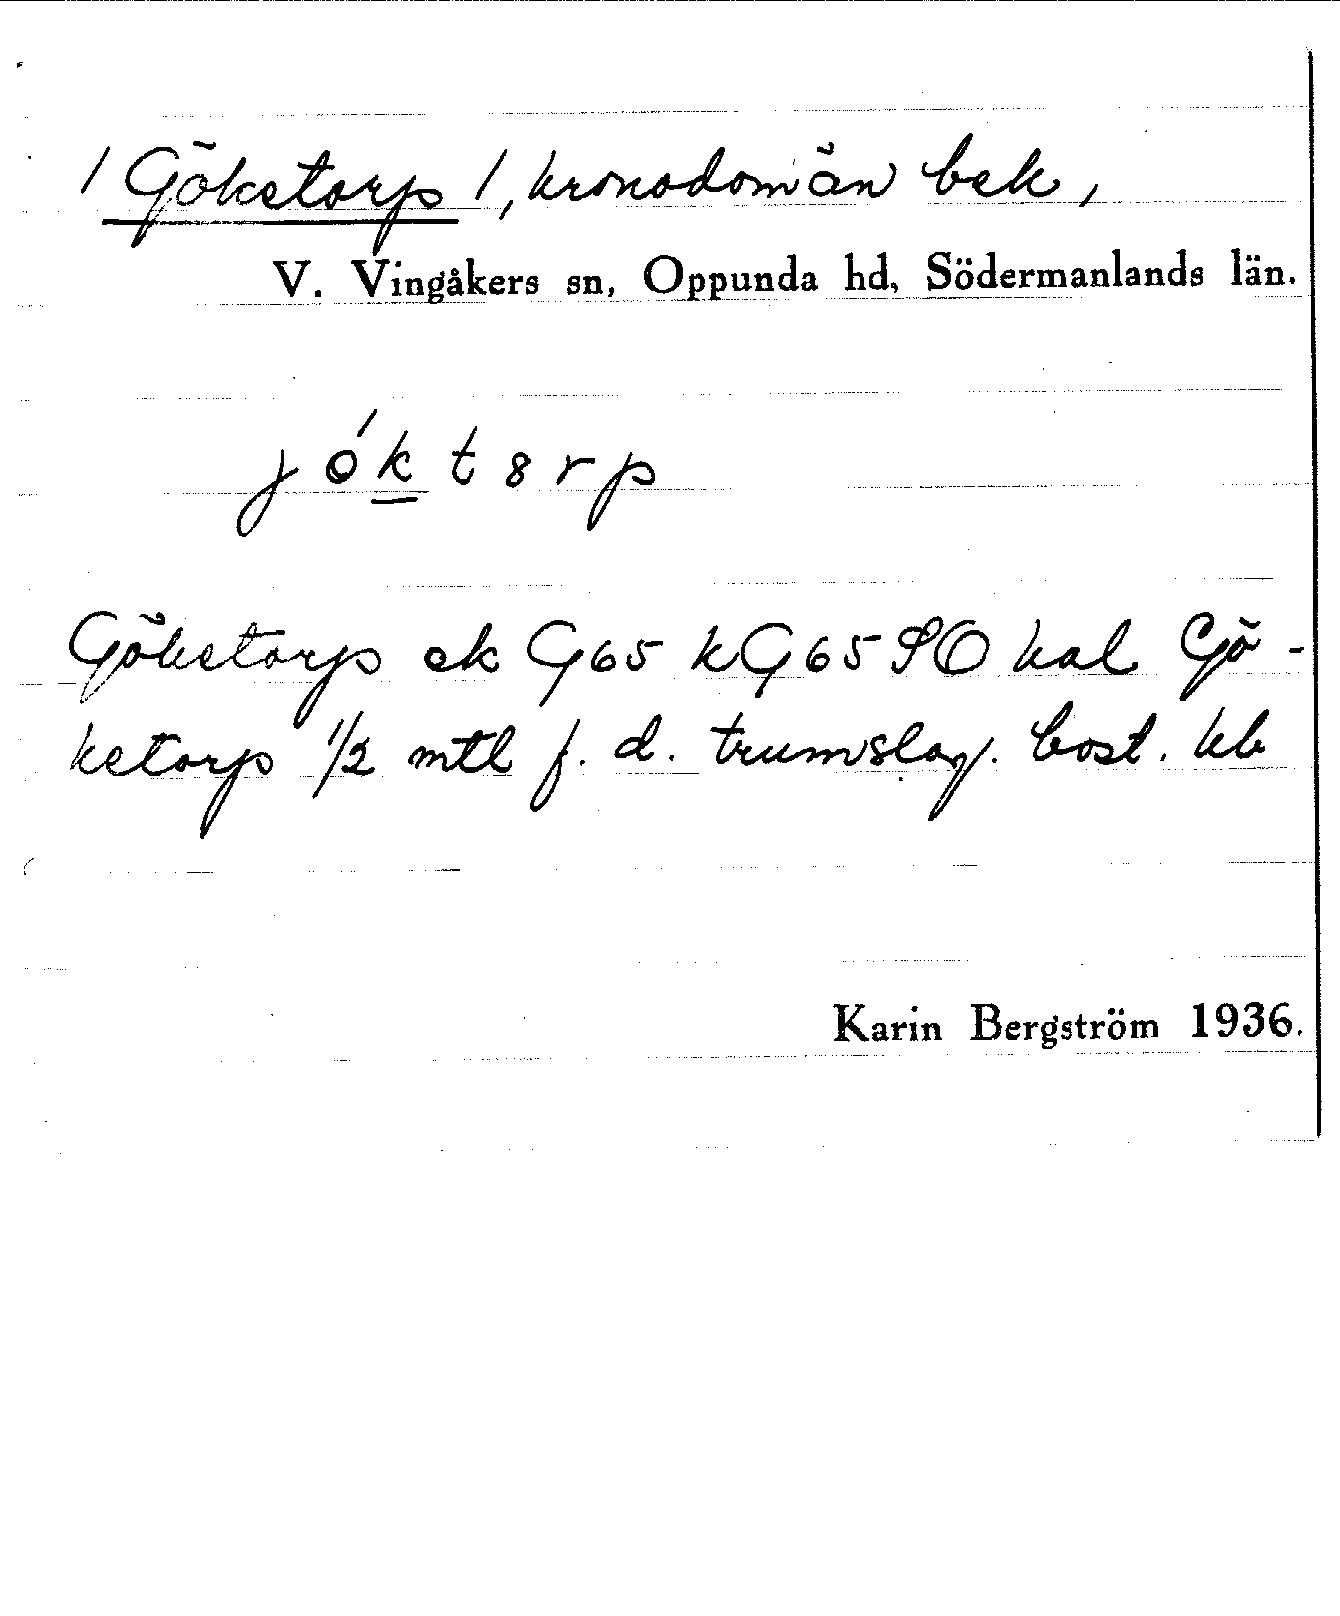 / Göketorp /, kronodomän bek,
V. Vingåkers sn, Oppunda hd, Södermanlands län.
jo´k t8rp
Göketorp ek G65 kG65SO kal Gö-
ketorp 1/2 mtl f. d. trumslag. bost. kb
Karin Bergström 1936.